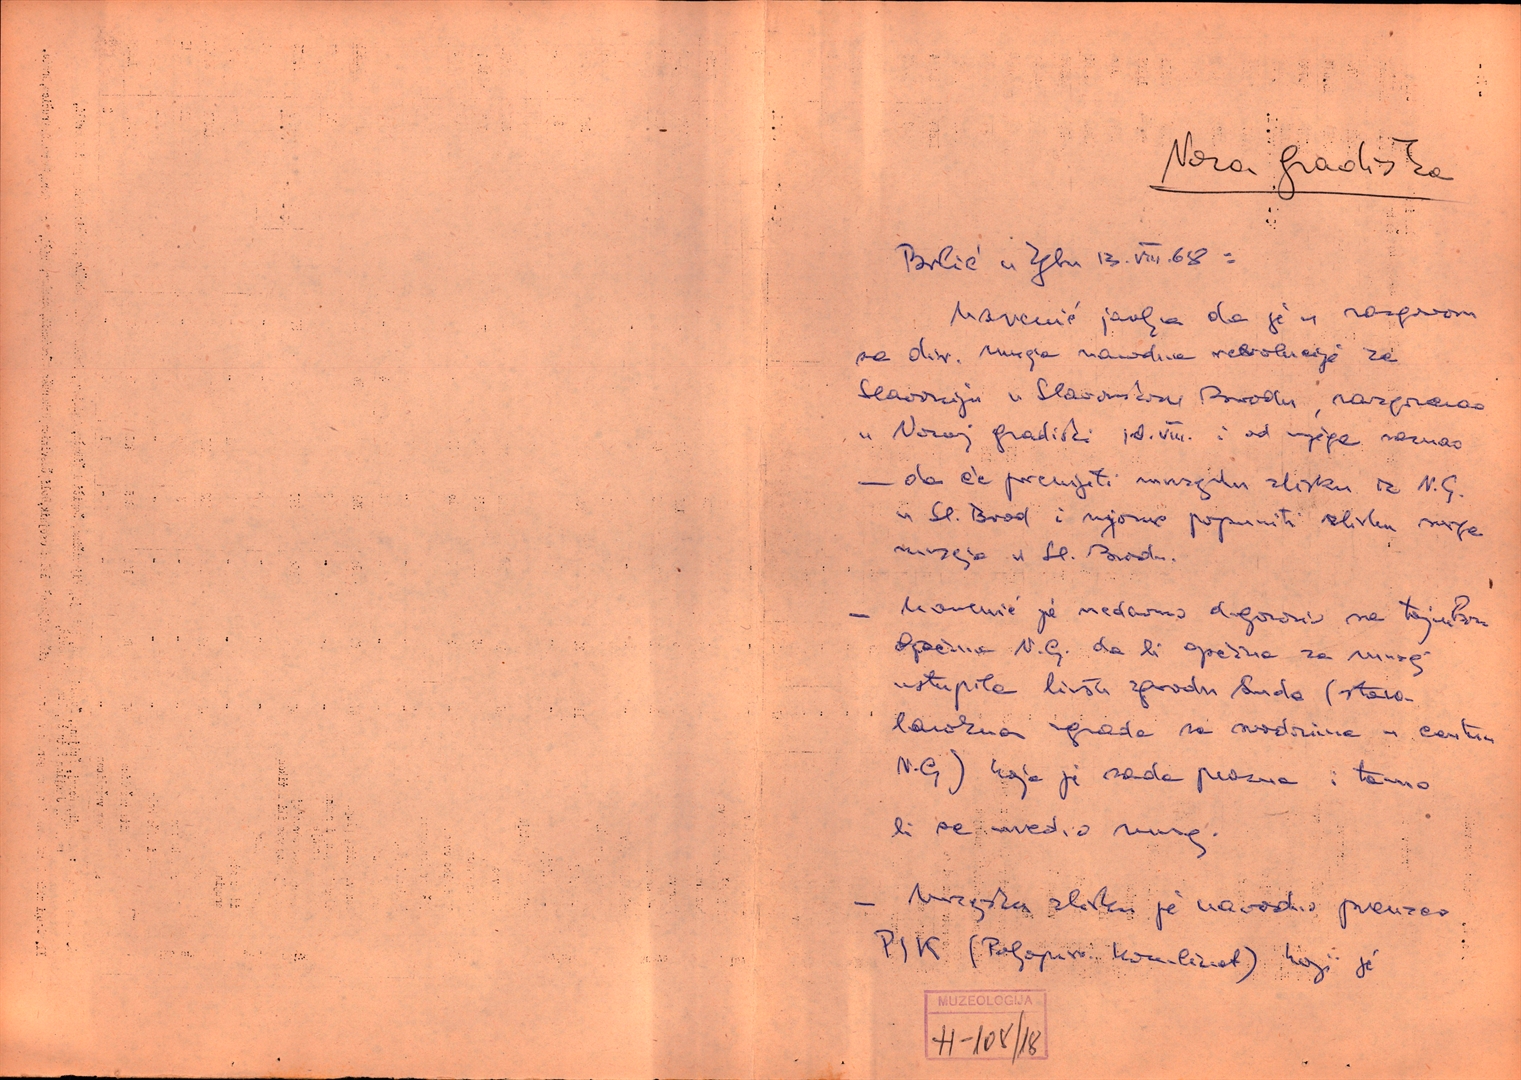 Nova Gradiška
Brlić u Zgbu 13.VIII.68 =
javlja da je u razgovoru
sa dir. muzeja narodne revolucije za
Slavoniju u Slavonskom Brodu, razgovarao
u Novoj Gradiški VIII. i od njega saznao
— da će prenijeti muzejsku zbirku iz N.G.
u Sl. Brod i njome popuniti zbirku svoga
muzeja u Sl. Brodu.
— je nedavno dogovorio sa
Općine N.G. da bi općina za muzej
ustupila bivšu zgradu Suda (stara
barokna zgrada sa svodovima u centru
N.G) koja je sada prazna i tamo
bi se uveo muzej.
— Muzejsku zbirku je navodno preuzeo
PIK (Poljopriv. kombinat) koji je
MUZEOLOGIJA
H-108/18